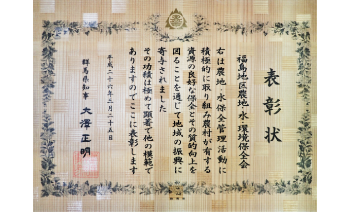 表彰状
福島地区農地・水・環境保全会
右は農地・水保全管理活動に
積極的に取り組み農村が有する
資源の良好な保全とその質的向上を
図ることを通じて地域の振興に
寄与されました
その功績は極めて顕著で他の模範で
ありますのでここに表彰します
平成二十六年三月二十五日
群馬県知事 大澤正明